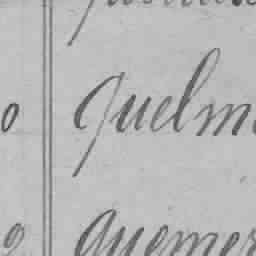 0 Quelm
2 Quemer